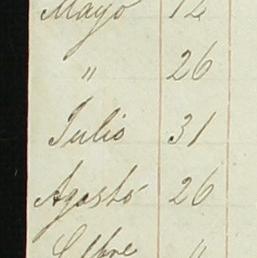 Mayo 12
" 26
Julio 31
Agosto 26
Stbre "